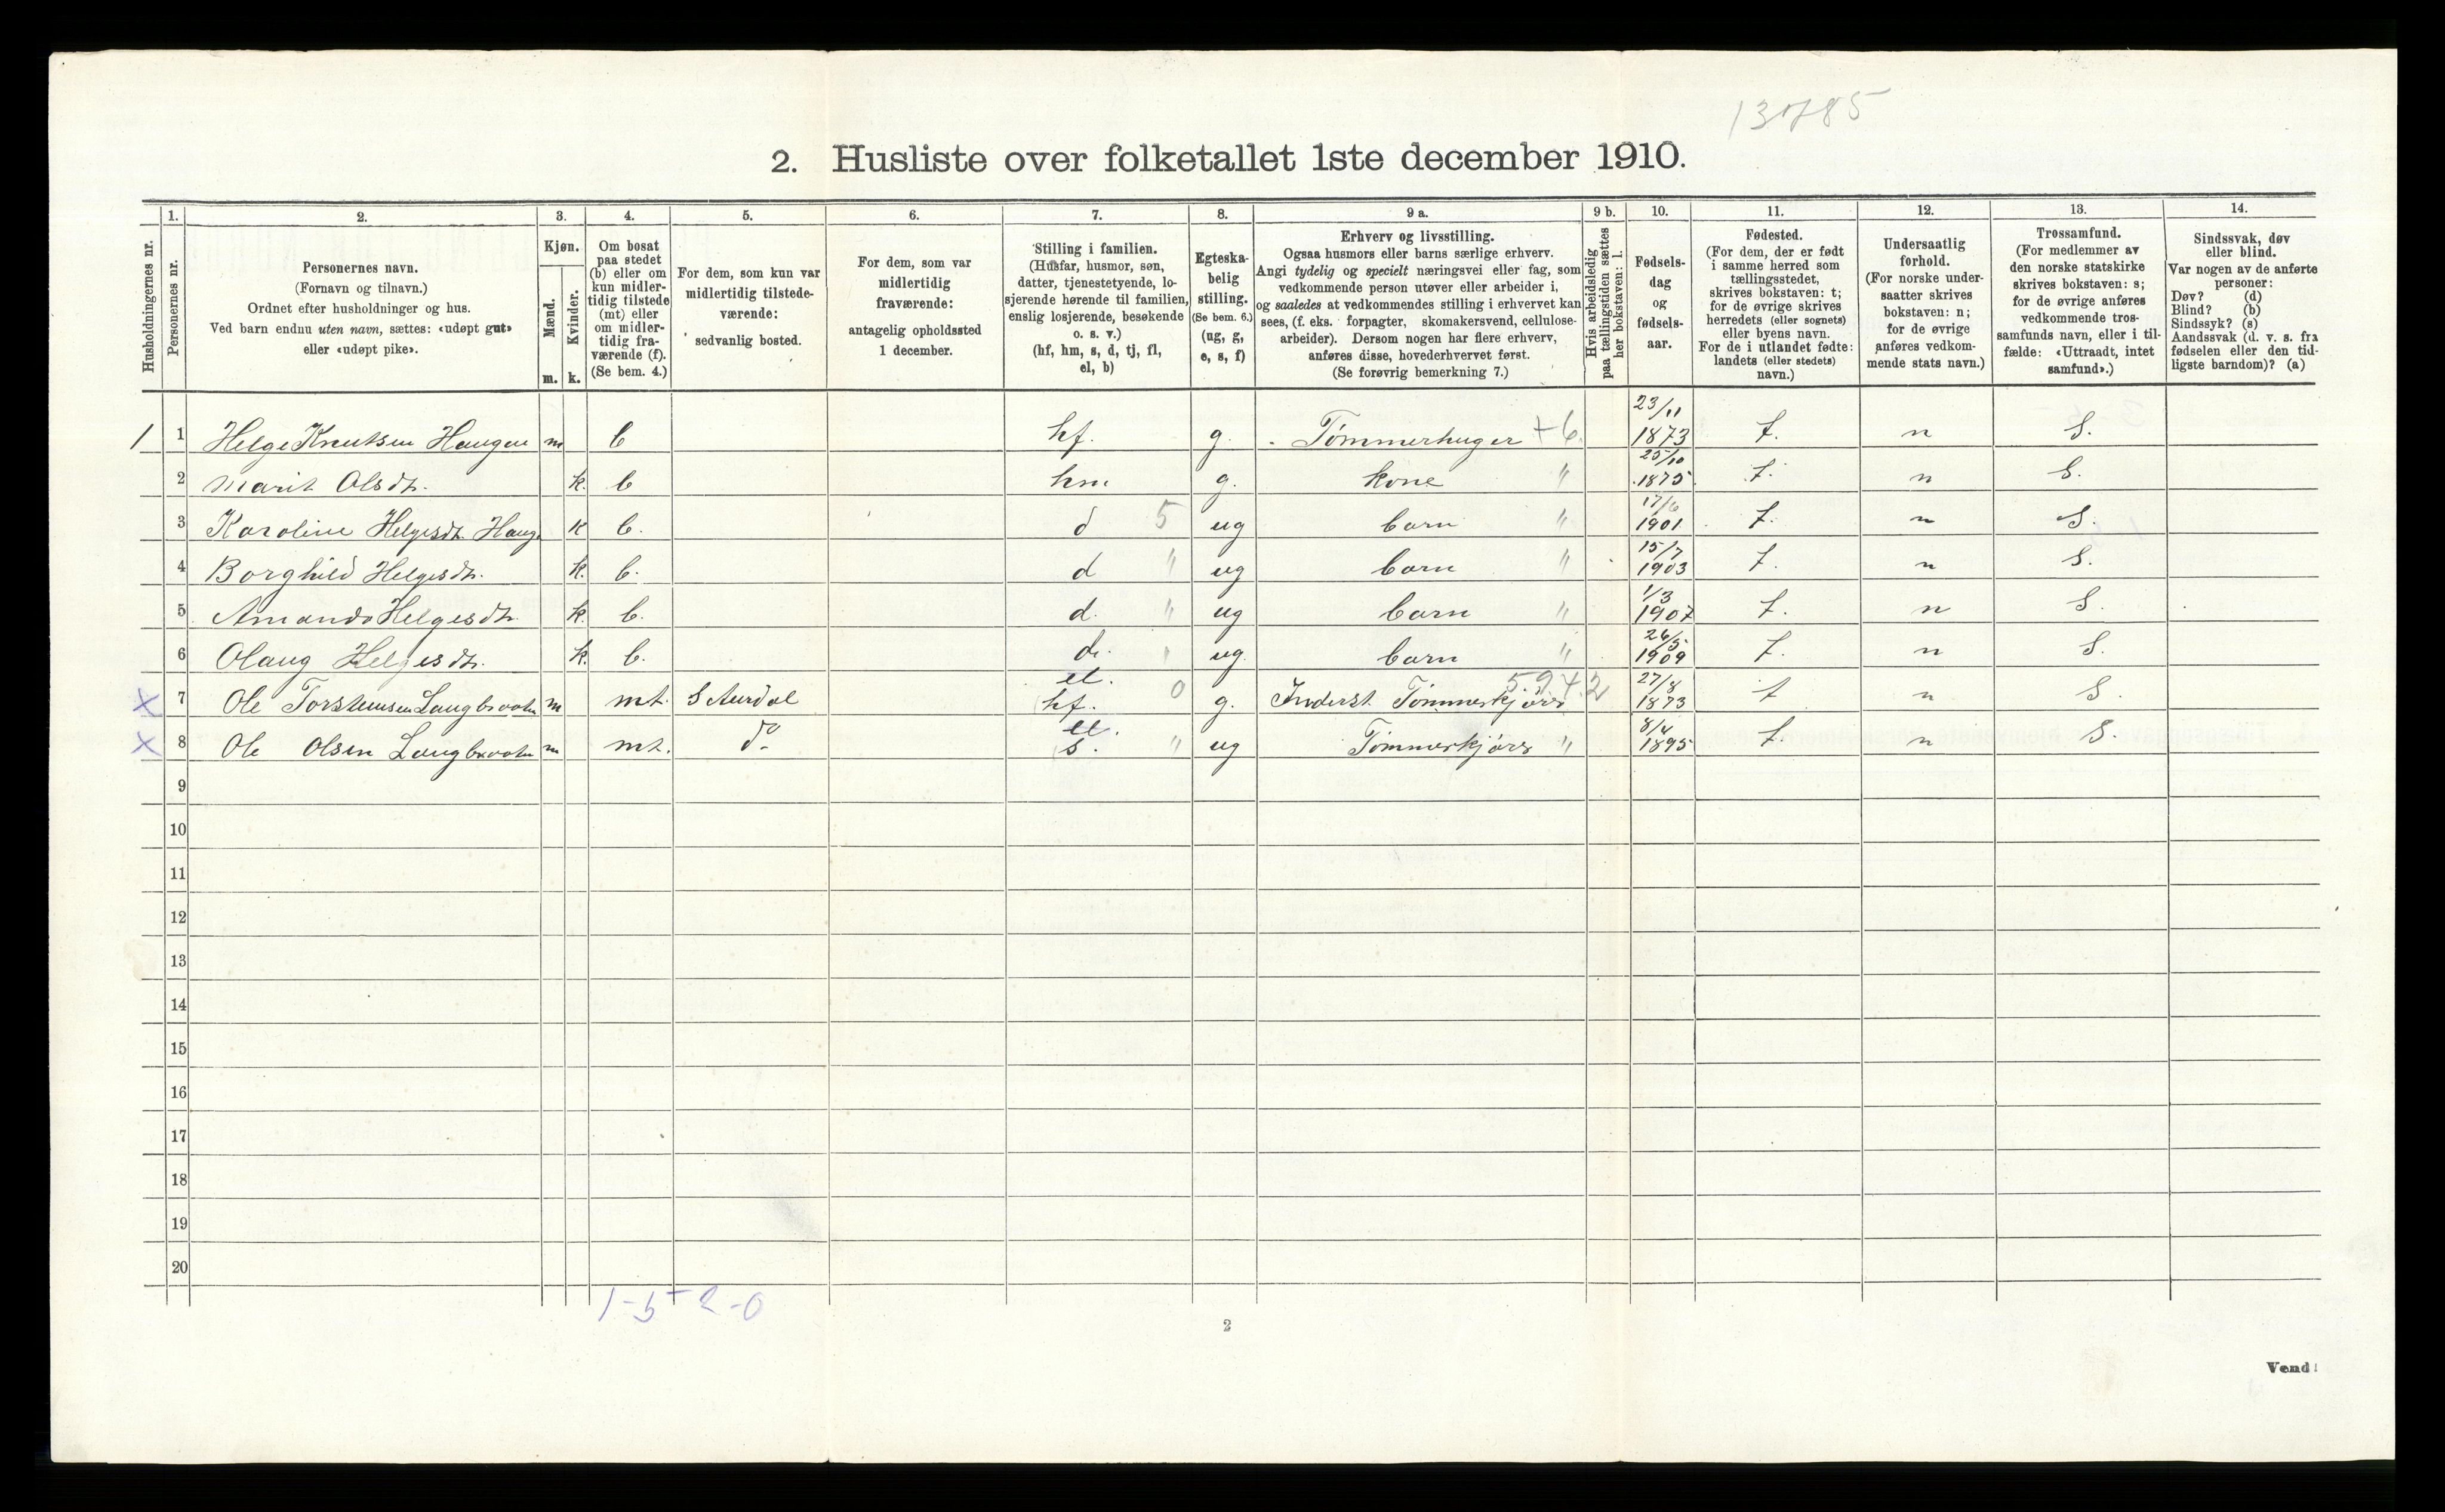 13785
2. Husliste over folketallet 1ste december 1910.
Husholdningernes nr.
1. Personernes nr.
2. Personernes navn.
(Fornavn og tilnavn.)
Ordnet efter husholdninger og hus.
Ved barn endnu uten navn, sættes: «udøpt gut»
eller «udøpt pike».
3. Kjøn.
Mænd. m.
Kvinder. k.
4. Om bosat
paa stedet
(b) eller om
kun midler-
tidig tilstede
(mt) eller
om midler-
tidig fra-
værende (f).
(Se bem. 4.)
5. For dem, som kun var
midlertidig tilstede-
værende:
sedvanlig bosted.
6. For dem, som var
midlertidig
fraværende:
antagelig opholdssted
1 december.
7. Stilling i familien.
(Husfar, husmor, søn,
datter, tjenestetyende, lo-
sjerende hørende til familien,
enslig losjerende, besøkende
o. s. v.)
(hf, hm, s, d, tj, fl,
el, b)
8. Egteska-
belig
stilling.
(Se bem. 6.)
(ug, g,
e, s, f)
9 a. Erhverv og livsstilling.
Ogsaa husmors eller barns særlige erhverv.
Angi tydelig og specielt næringsvei eller fag, som
vedkommende person utøver eller arbeider i,
og saaledes at vedkommendes stilling i erhvervet kan
sees, (f. eks. forpagter, skomakersvend, cellulose-
arbeider). Dersom nogen har flere erhverv,
anføres disse, hovederhvervet først.
(Se forøvrig bemerkning 7.)
9 b. Hvis arbeidsledig
paa tællingstiden sættes
her bokstaven: l.
10. Fødsels-
dag
og
fødsels-
aar.
11. Fødested.
(For dem, der er født
i samme herred som
tællingsstedet,
skrives bokstaven: t;
for de øvrige skrives
herredets (eller sognets)
eller byens navn.
For de i utlandet fødte:
landets (eller stedets)
navn.)
12. Undersaatlig
forhold.
(For norske under-
saatter skrives
bokstaven: n;
for de øvrige
anføres vedkom-
mende stats navn.)
13. Trossamfund.
(For medlemmer av
den norske statskirke
skrives bokstaven: s;
for de øvrige anføres
vedkommende tros-
samfunds navn, eller i til-
fælde: «Uttraadt, intet
samfund».)
14. Sindssvak, døv
eller blind.
Var nogen av de anførte
personer:
Døv? (d)
Blind? (b)
Sindssyk? (s)
Aandssvak (d. v. s. fra
fødselen eller den tid-
ligste barndom)? (a)
1 1 Helge Knutsen Haugen m b hf. g. Tømmerhuger +6. 23/11 1873 t. n S.
2 Marit Olsdt. k. b hm g. kone " 25/10 1875 t. n S.
3 Karoline Helgesdt. Haug k b. d 5 ug barn " 17/6 1901 t. n S.
4 Borghild Helgesdt. k. b. d " ug barn " 15/7 1903 t. n S.
5 Amanda Helgesdt. k. b. d. " ug barn " 1/3 1907 t. n S.
6 Olaug Helgesdt. k. b. d. " ug. barn " 26/5 1909 t. n S.
X 7 Ole Torstensen Langbraaten m mt. S Aurdal el. hf. 0 g. Inderst Tømmerkjører 594.2 27/8 1873 t n S.
X 8 Ole Olsen Langbraaten m mt. do el. s. " ug Tømmerkjører " 8/4 1895 t. n S.
9
10
11
12
13
14
15
16
17
18
19
20
1-5-2-0
2
Vend!